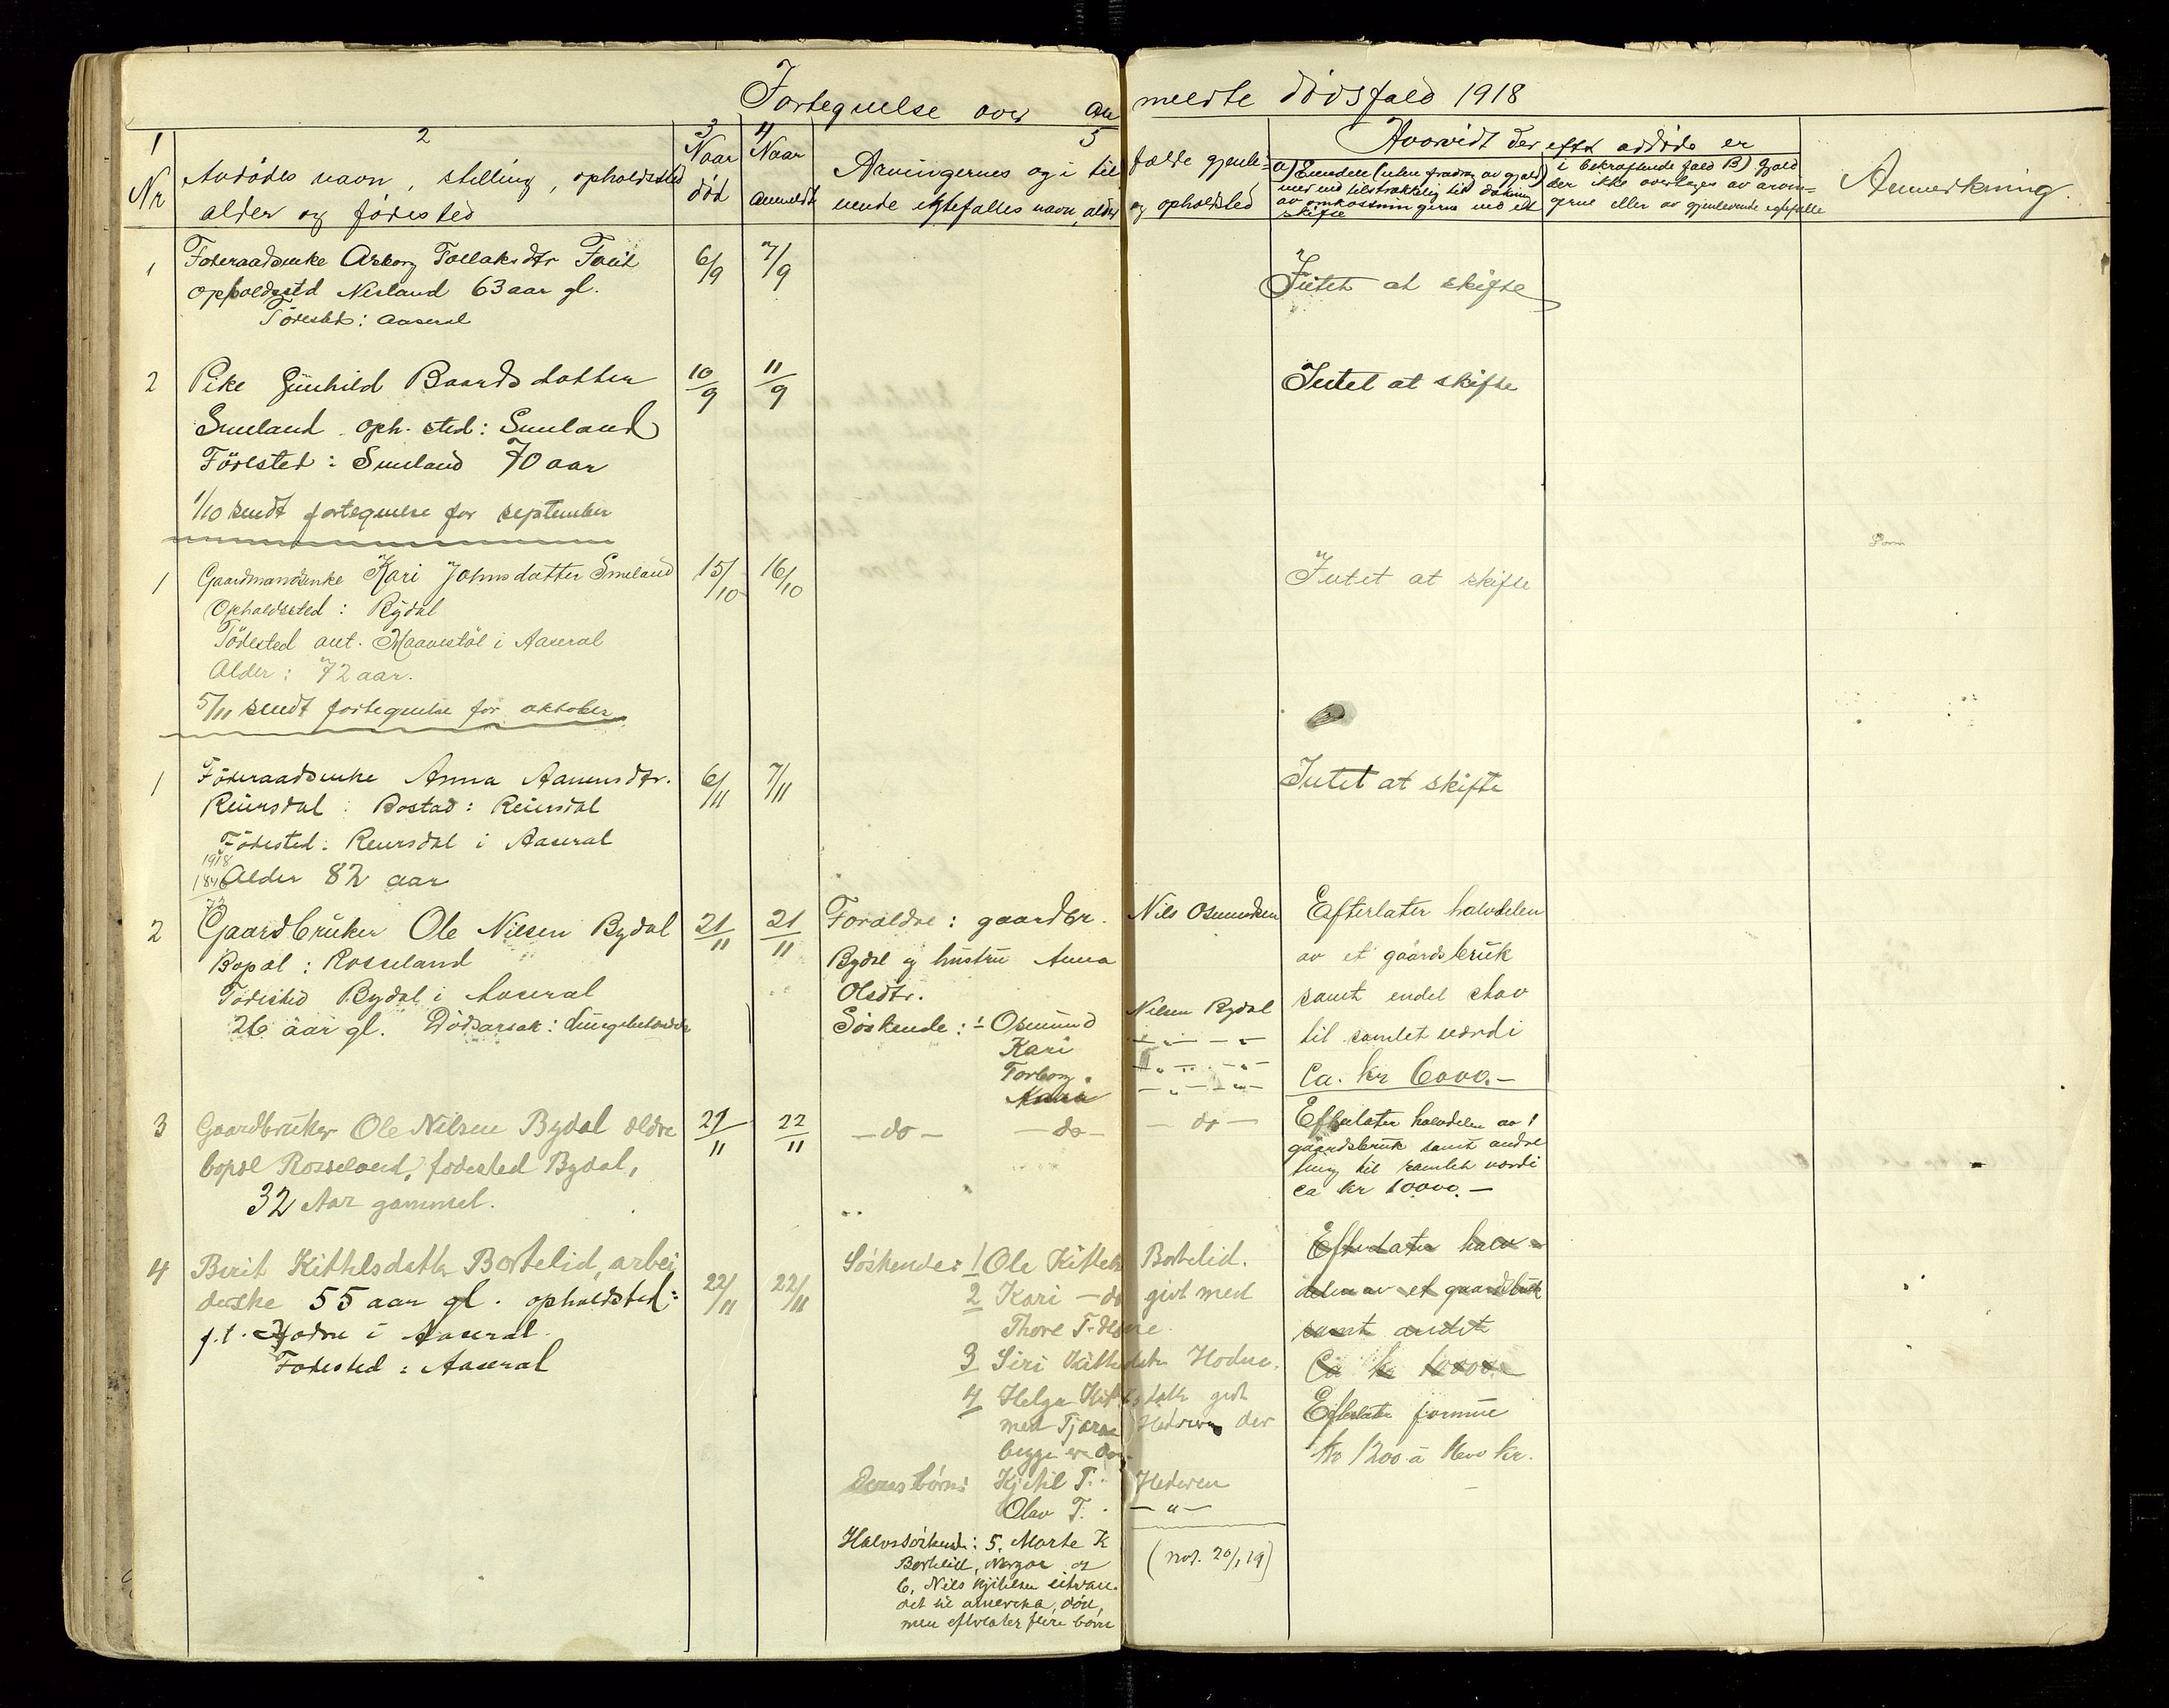 Fortegnelse over anmeldte dødsfald 1918
1 2 3 4 5
Nr
Avdødes navn, stilling, opholdssted
alder og fødested
Naar
død
Naar
anmeldt
Arvingernes og i tilfælde gjenle-
vende egtefælles navn, alder og opholdsted
Hvorvidt der efter avdøde er
a) Eiendele (uten fradrag av gjæld)
med tilstrækkelig til dækning
av omkostningerne ved et
skifte
i bekræftende fald B) Gjæld
der ikke overtages av arvin-
gerne eller av gjenlevende egtefælle
Anmerkning.
1 Føderaadsenke Asborg Tollaksdtr 6/9 7/9 Intet at skifte
opholdssted Nesland 63 aar gl.
Fødested: Aaseral
2 Pike Gunhild Baardsdatter 10/9 11/9 Intet at skifte
Smeland oph. sted: Smeland
Fødested: Smeland 70 aar
1/10 sendt fortegnelse for september
1 Gaardmandsenke Kari Johnsdatter Smeland 15/10 16/10 Intet at skifte
Opholdssted: Rydal
Fødested ant. i Aaseral
Alder: 72 aar.
5/11 sendt fortegnelse for oktober
1 Føderaadsenke Anna Aanensdtr. 6/11 7/11 Intet at skifte
Reiersdal Bostad: Reiersdal
Fødested: Reiersdal i Aaseral
1918
1846
72
Alder 82 aar
2 Gaardbruker Ole Nilsen Bydal 21/11 21/11 Foraldre: gaardbr. Nils Osmundsen Efterlater halvdelen
Bopæl: Rosseland Bydal og hustru Anna av et gaardsbruk
Fødested Bydal i Aaseral Olsdtr. samt endel skov
26 aar gl. Dødsarsak: Søskende: 1 Osmund Nilsen Bydal til samlet værdi
Kari — " — " — Ca. kr 6000.—
Torborg — " — " —
Anna — " — " —
3 Gaardbruker Ole Nilsen Bydal ældre 21/11 22/11 — do — — do — — do — Efterlater halvdelen av 1
bopæl Rosseland, fødested Bydal, gaardsbruk samt andre
32 Aar gammel. ting til samlet værdi
ca kr 10000.—
4 Birit Kittelsdatter Bortelid, arbei 22/11 22/11 Søskende: 1 Ole Kittels Bortelid. Efterlater halv-
derske 55 aar gl. opholdsted: 2 Kari — do givt med delen av et gaardsbruk
f.t. Hodne i Aaseral Thore T. samt andet
Fødested: Aaseral 3 Siri Hodne. Ca kr 10000.—
4 Helga givt Efterlater formue
med Tjøran der kr 1200 a kr.
begge er døe.
Deres børn: Kjetil T.
Olav T. — " —
Halvsøskende: 5. Marte K
Bortelid, og (not. 20/1 19)
6. Nils Kjitilsen utvan-
det til amerika, død,
men efterlater flere børn